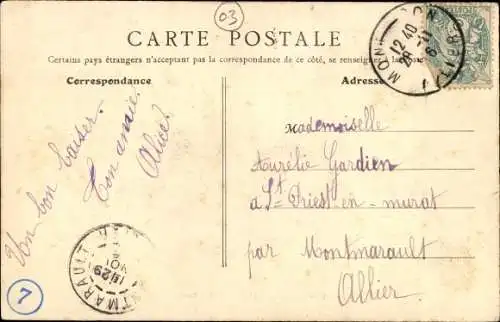 03
CARTE POSTALE
Certains pays étrangers n'acceptant pas la correspondance de ce côté, se renseigner à la poste
Correspondance
Adresse
Un bon baiser.
Ton amie.
Alice
Mademoiselle
Aurélie Gardien
à St Priest-en-murat
par Montmarault
Allier
MON
12 40
MARAULT
7